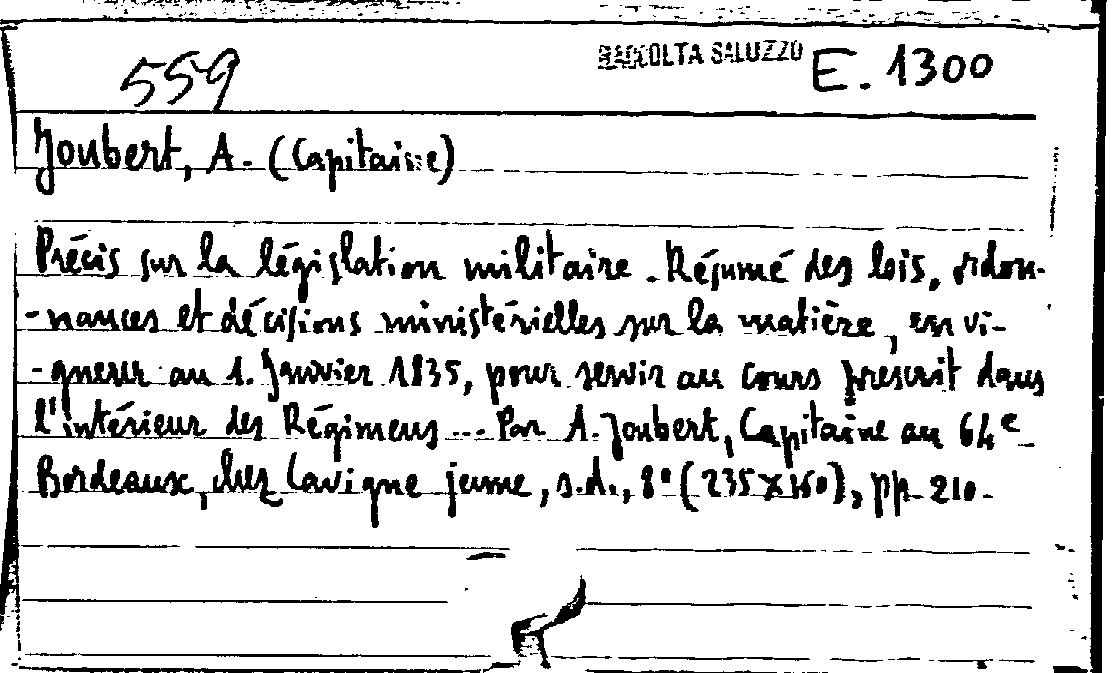 559 RACCOLTA SALUZZO E. 1300
Joubert, A. (Capitaine)
Précis sur la législation militaire. Résumé des lois, ordon-
-nances et décisions ministérielles sur la matière, en vi-
-gueur au 1. Janvier 1835, pour servir au cours prescrit dans
l'intérieur des Régimens... Par A. Joubert, Capitaine au 64e
Bordeaux, chez Lavigne jeune, s.d., 8° (235x160), pp. 210.